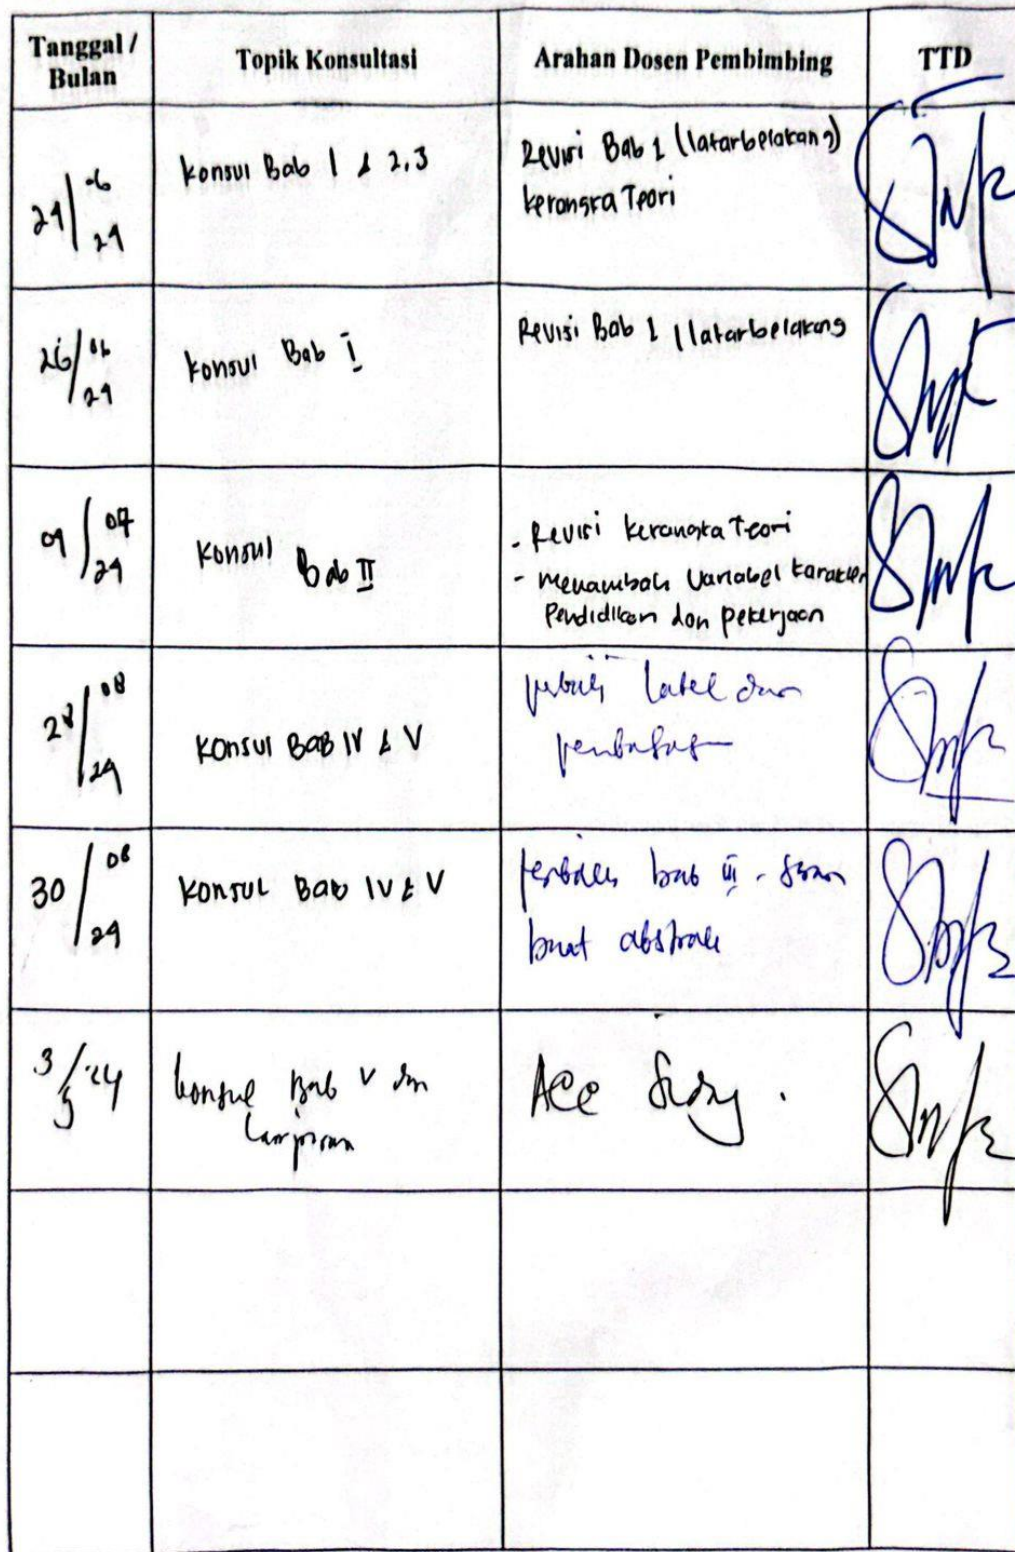 Tanggal / Bulan
Topik Konsultasi
Arahan Dosen Pembimbing
TTD
24/06
24
Konsul Bab 1 & 2.3
Revisi Bab 1 (latarbelakang)
kerangka Teori
26/06
24
Konsul Bab I
Revisi Bab 1 (latarbelakang
09/07
24
Konsul Bab II
- Revisi kerangka Teori
- Menambah Variabel karakter
Pendidikan dan pekerjaan
28/08
24
Konsul BAB IV & V
tabel dan
30/08
24
Konsul Bab IV & V
bab III
buat abstrak
3/ '24
Konsul Bab V dan
Lampiran
Acc Sidang.